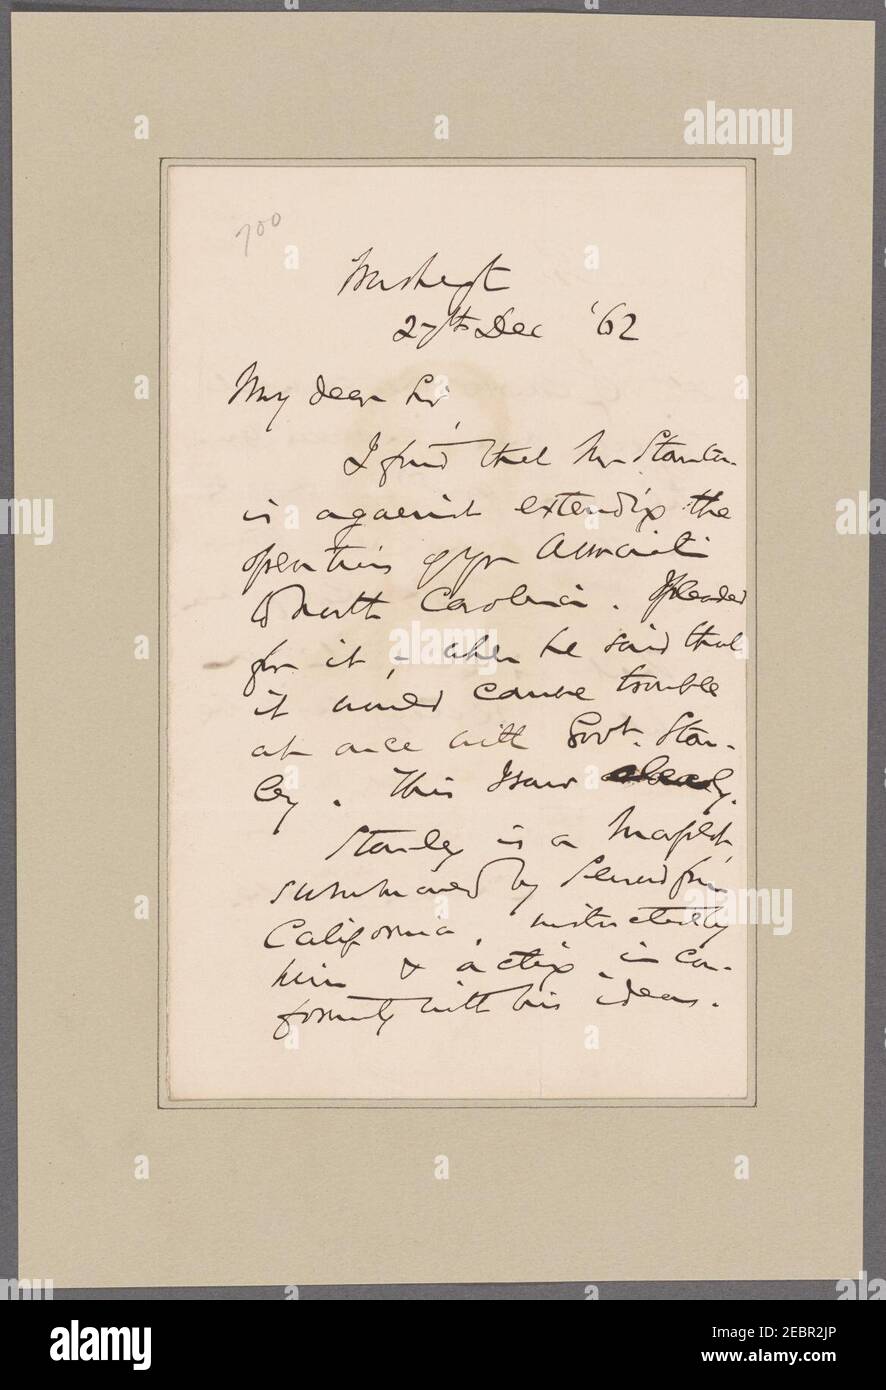 700
Washgt
27th Dec '62
My dear Sir,
I find that Mr Stanton
is against extending the
operations of yr Association
to North Carolina. I pleaded
for it, - when he said that
it would cause trouble
at once with Govt. Stan-
ley. This I saw already.
Stanley is a
summoned by Seward from
California, instructed by
him & acting in con-
formity with his ideas.
alamy
Image ID: 2EBR2JP
www.alamy.com